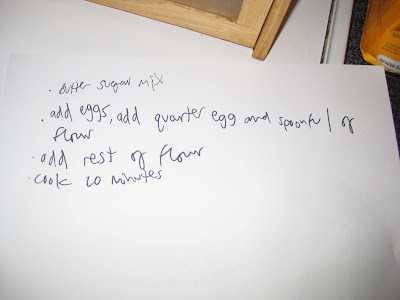 . Butter sugar mix
. add eggs, add quarter egg and spoonful of
flour
. add rest of flour
. cook 20 minutes